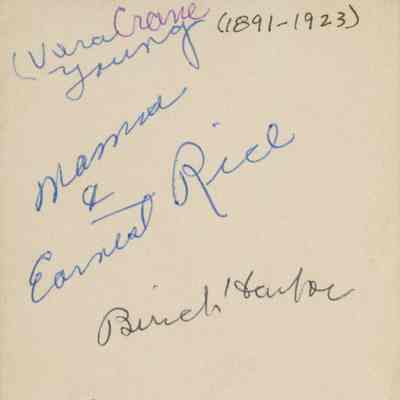 (Vera Crane (1891-1923)
Young
Mamma
&
Earnest Rice
Birch Harbor